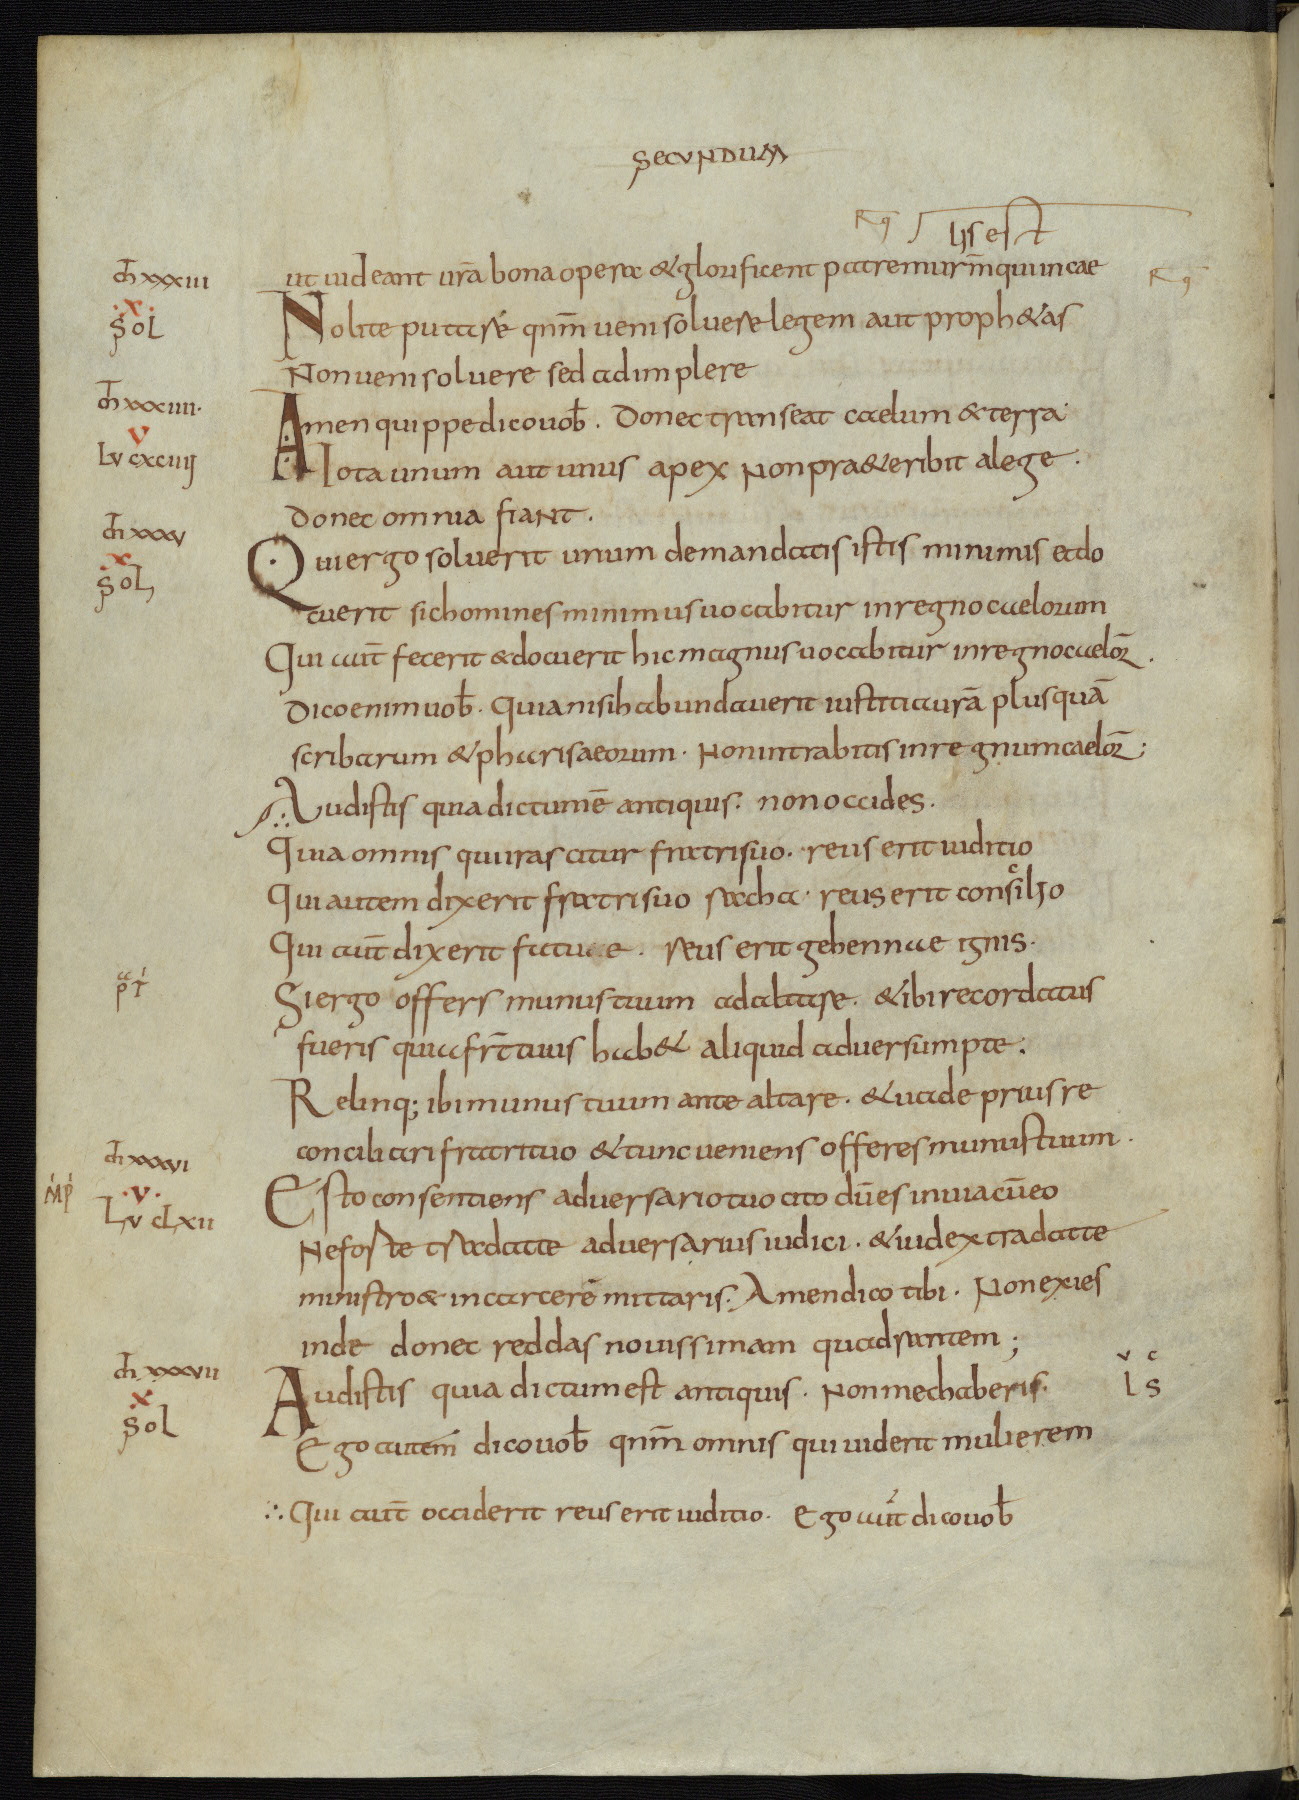 SECUNDUM
Rq
lis est
ut uideant urā bona opera & glorificent patrem urm̄ qui in cae
Rq
mħ xxxiii
X
SoL
Nolite putare qnm̄ ueni soluere legem aut proph&as
Non ueni soluere sed adimplere
mħ xxxiiii.
V
Lv cxciiij
Amen quippe dico uob̄. Donec transeat caelum & terra
Iota unum aut unus apex Non pra&eribit a lege.
Donec omnia fiant.
mħ xxxv
X
SoL
Qui ergo soluerit unum de mandatis istis minimis et do
cuerit sic homines minimus uocabitur in regno caelorum
Qui aut̄ fecerit & docuerit hic magnus uocabitur in regno caelor̄.
Dico enim uob̄. Quia nisi habundauerit iustitia urā plus quā
scribarum & pharisaeorum. Non intrabitis in regnum caelor̄;
∴ Audistis quia dictum ē antiquis. non occides.
Quia omnis qui irascitur fratri suo. reus erit iuditio
Qui autem dixerit fratri suo racha. reus erit consilio
Qui aut̄ dixerit fatue. reus erit gehennae ignis.
Si ergo offers munus tuum ad altare. & ibi recordatus
fueris quia fr̄ tuus hab& aliquid aduersum te.
Relinq; ibi munus tuum ante altare. & uade prius re
conciliari fratri tuo & tunc ueniens offeres munus tuum.
mħ xxxvi
V
Lv cLxii
Esto consentiens aduersario tuo cito dū es in uia cū eo
Ne forte tradat te aduersarius iudici. & iudex tradat te
ministro & in carcerē mittaris. Amen dico tibi. Non exies
inde donec reddas nouissimam quadrantem;
mħ xxxvii
X
SoL
Audistis quia dictum est antiquis. Non mechaberis.
v c
l s
Ego autem dico uob̄ qnm̄ omnis qui uiderit mulierem
∴ Qui aut̄ occiderit reus erit iuditio. Ego aut̄ dico uob̄